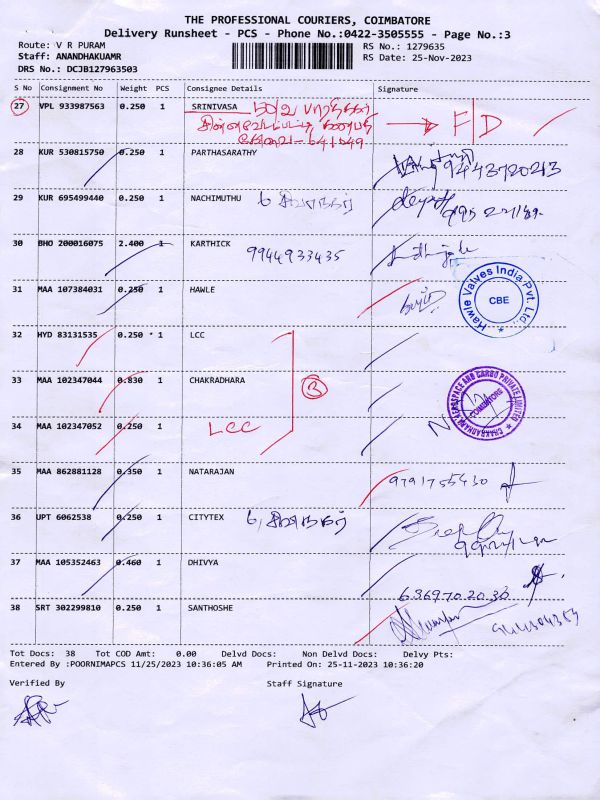 THE PROFESSIONAL COURIERS, COIMBATORE
Delivery Runsheet - PCS - Phone No.:0422-3505555 - Page No.:3
Route: V R PURAM RS No.: 1279635
Staff: ANANDHAKUAMR RS Date: 25-Nov-2023
DRS No.: DCJB127963503
S No Consignment No Weight PCS Consignee Details Signature
27 VPL 933987563 0.250 1 SRINIVASA F/D
641049
28 KUR 530815750 0.250 1 PARTHASARATHY 9443720213
29 KUR 695499440 0.250 1 NACHIMUTHU
30 BHO 200016075 2.400 1 KARTHICK 9944933435
31 MAA 107384031 0.250 1 HAWLE
Hawle Valves India Pvt. Ltd.
CBE
32 HYD 83131535 0.250 * 1 LCC
33 MAA 102347044 0.830 1 CHAKRADHARA 3
34 MAA 102347052 0.250 1 LCC
CHAKRADHARA AEROSPACE AND CARGO PRIVATE LIMITED
COIMBATORE
35 MAA 862881128 0.350 1 NATARAJAN 9791755430
36 UPT 6062538 0.250 1 CITYTEX
37 MAA 105352463 0.460 1 DHIVYA 6369702030
38 SRT 302299810 0.250 1 SANTHOSHE
Tot Docs: 38 Tot COD Amt: 0.00 Delvd Docs: Non Delvd Docs: Delvy Pts:
Entered By :POORNIMAPCS 11/25/2023 10:36:05 AM Printed On: 25-11-2023 10:36:20
Verified By Staff Signature